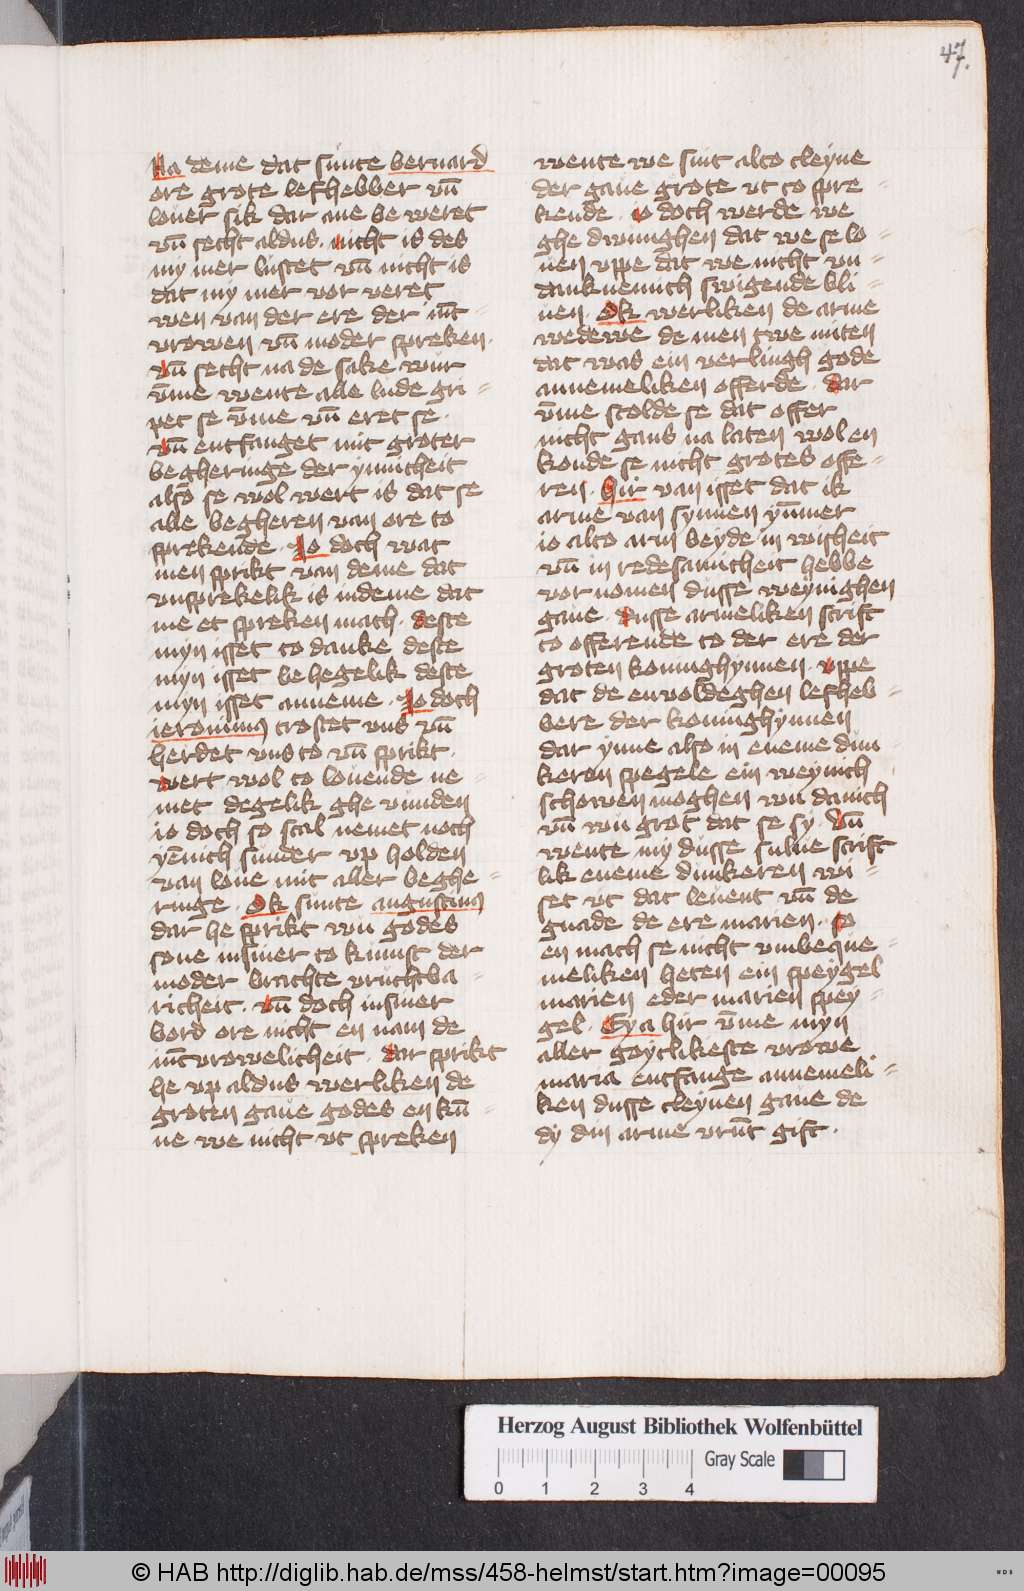 47.
Na deme dat sunte bernard
ore grote lefhebber vn̄
louer sik dar ane be weret
vn̄ secht aldus. nicht is des
my mer lustet vn̄ nicht is
dat my mer vor veret
wen van der ere der iūc
vrowen vn̄ moder spreken.
vn̄ secht na de sake wur
v̄me wente alle lude gri-
pet se v̄me vn̄ eret se.
vn̄ entfanget mit groter
begheringe der ynnicheit
also se wol wert is dat se
alle begheren van ore to
sprekende. Jo doch wat
men sprikt van deme dat
vnsprekelik is indeme dat
me et spreken mach. deste
myn isset to danke deste
myn isset behegelik deste
myn isset anneme. Jo doch
ieronimus trostet vns vn̄
herdet vns to vn̄ sprikt.
wert wol to louende ne-
met degelik ghe vunden
io doch so scal nemet noch
yēnich sunder vp holden
van loue mit aller beghe-
ringe. Ok sunte augustinus
dar he sprikt wu godes
sone in siner to kumst der
moder brachte vruchtba-
richeit. vn̄ doch in siner
bord ore nicht en nam de
iūcvrowelicheit. dar sprikt
he vp aldus werliken de
groten gaue godes en kū-
ne we nicht vt spreken
wente we sint alto cleyne
der gaue grote vt to spre-
kende. io doch werde we
ghe dwunghen dat we se lo-
uen vppe dat we nicht vn-
danknemich swigende bli-
uen. Ok werliken de arme
wedewe de men twe miten
dat was ein verlingh gode
annemeliken offerde. dar
v̄me scolde se dat offer
nicht gans na laten wol en
konde se nicht grotes offe-
ren. Hir van isset dat ik
arme van synnen yūmer
io alto arm beyde in wisheit
vn̄ in redesamicheit hebbe
vor nomen dusse weynighen
gaue. dusse armeliken scrift
to offerende to der ere der
groten koninghynnen. vppe
dat de envoldeghen lefheb-
bere der koninghynnen
dar ynne also in eneme dun
keren spegele ein weynich
schowen moghen wu danich
vn̄ wu grot dat se sy. Vn̄
wente my dusse sulue scrift
lik eneme dunkeren wi-
set vt dat leuent vn̄ de
gnade de ere marien. so
en mach se nicht vmbeque-
meliken heten ein speygel
marien eder marien spey-
gel. Eya hir v̄me myn
aller goytlikeste vrowe
maria entfange annemeli-
ken dusse cleynen gaue de
dy din arme vrūt gift.
Herzog August Bibliothek Wolfenbüttel
Gray Scale
0 1 2 3 4
© HAB http://diglib.hab.de/mss/458-helmst/start.htm?image=00095